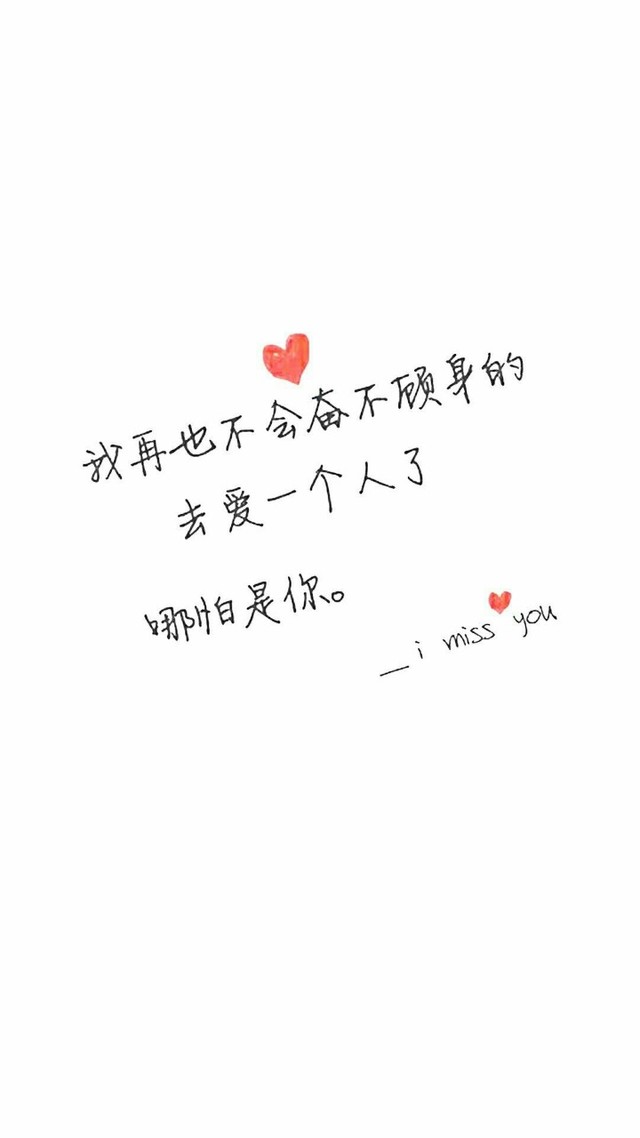 我再也不会奋不顾身的
去爱一个人了
哪怕是你。
__i miss you